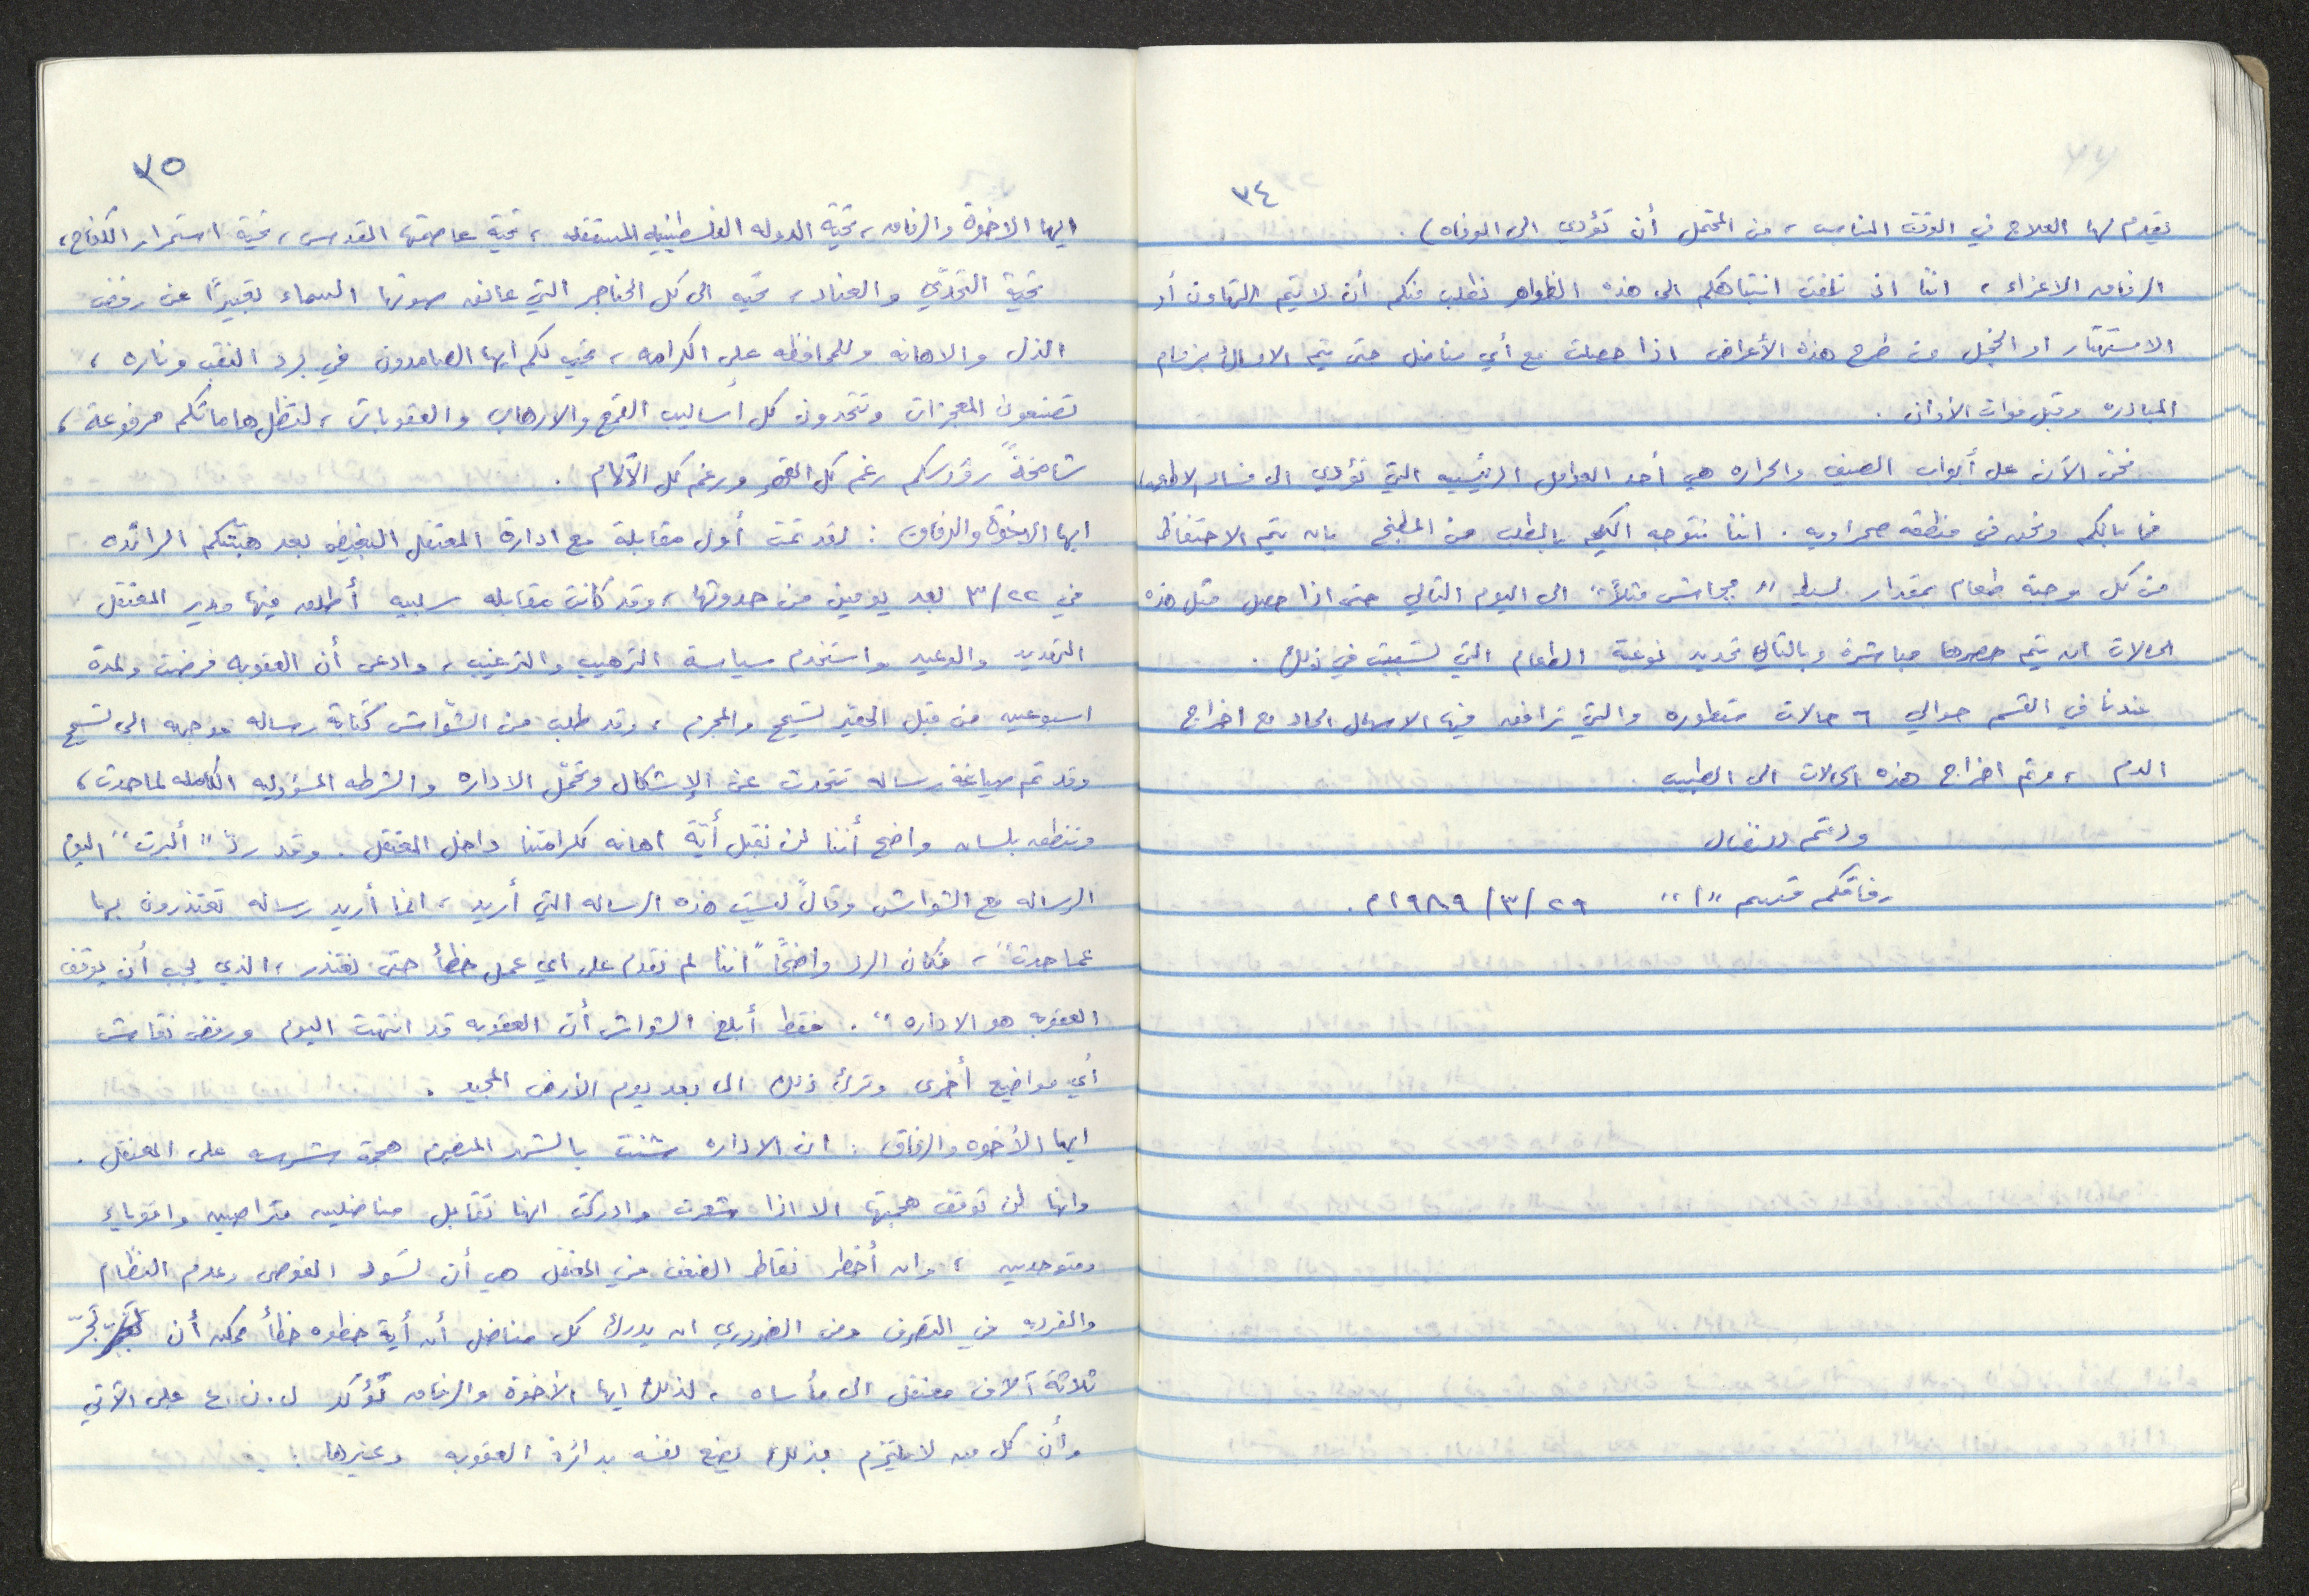 ٣٤
يقدم لها العلاج في الوقت المناسب، من المحتمل أن تؤدي الى الوفاه).
الرفاق الاعزاء، اننا اذ نلفت انتباهكم الى هذه الظواهر نطلب منكم أن لا يتم التهاون أو
الاستهتار او الخجل من طرح هذه الأعراض اذا حصلت مع أي مناضل حتى يتم الامساك بزمام
المبادره وقبل فوات الأوان.
نحن الآن على أبواب الصيف والحراره هي أحد العوامل الرئيسيه التي تؤدي الى فساد الاطعمه
فما بالكم ونحن في منطقه صحراويه. اننا نتوجه اليكم بالطلب من المطبخ بان يتم الاحتفاظ
من كل وجبة طعام بمقدار بسيط "جماش مثلاً" الى اليوم التالي حتى اذا حصل مثل هذه
الحالات ان يتم حصرها مباشرة وبالتالي تحديد نوعية الطعام التي تسببت في ذلك.
عندنا في القسم حوالي ٦ حالات متطوره والتي ترافق فيها الاسهال الحاد مع اخراج
الدم، وتم اخراج هذه الحالات الى الطبيب.
ودمتم للنضال
رفاقكم قسم "ا" ٢٩/٣/١٩٨٩م.
٣٥
ايها الاخوة والرفاق، تحية الدوله الفلسطينيه المستقله، تحية عاصمتها القدس، تحية استمرار الكفاح،
تحية التحدّي والعناد، تحيه الى كل الحناجر التي عانق صوتها السماء تعبيرًا عن رفض
الذل والاهانه وللمحافظه على الكرامه، تحيه لكم ايها الصامدون في برد النقب وناره،
تصنعون المعجزات وتتحدون كل أساليب القمع والارهاب والعقوبات، لتظل هاماتكم مرفوعة،
شامخةً رؤوسكم رغم كل القهر ورغم كل الآلام.
ايها الاخوة والرفاق: لقد تمت أول مقابلة مع ادارة المعتقل البغيض بعد هبتكم الرائده
في ٢٢/٣ بعد يومين من حدوثها، وقد كانت مقابله سلبيه أطلق فيها مدير المعتقل
التهديد والوعيد واستخدم سياسة الترهيب والترغيب، وادعى أن العقوبه فرضت ولمدة
اسبوعين من قبل الحقير تسيمح والمجرم، وقد طلب من الشوّاش كتابة رساله موجهه الى تسيمح
وقد تم صياغة رساله تتحدث عن الإشكال وتحمّل الاداره والشرطه المسؤوليه الكامله لما حدث،
وتنطق بلسان واضح أننا لن نقبل أيّة اهانه لكرامتنا داخل المعتقل. وقد ردّ "ألبرت" اليوم
الرساله مع الشواش وقال "ليست هذه الرساله التي أريد، انما أريد رساله تعتذرون بها
عما حدث"، فكان الرد واضحًا "اننا لم نقدم على اي عمل خطأ حتى نعتذر، الذي يجب أن يوقف
العقوبه هو الاداره". فقط أبلغ الشواش أن العقوبه قد انتهت اليوم ورفض نقاش
أي مواضيع أخرى وترك ذلك الى بعد يوم الارض المجيد.
ايها الأخوه والرفاق: ان الاداره شنت بالشهر المنصرم هجمة شرسه على المعتقل.
وانها لن توقف هجمتها الا اذا شعرت وادركت انها تقابل مناضلين متراصين واقوياء
ومتوحدين، وان أخطر نقاط الضعف في المعتقل هي أن تسود الفوضى وعدم النظام
والفرديه في التصرف ومن الضروري ان يدرك كل مناضل أن أية خطوه خطأ ممكن أن تجرّ
ثلاثة آلاف معتقل الى مأساه، لذلك ايها الأخوة والرفاق تؤكد ل.ن.ع على الآتي
وأن كل من لا يلتزم بذلك يضع نفسه بدائرة العقوبه وغيرها: